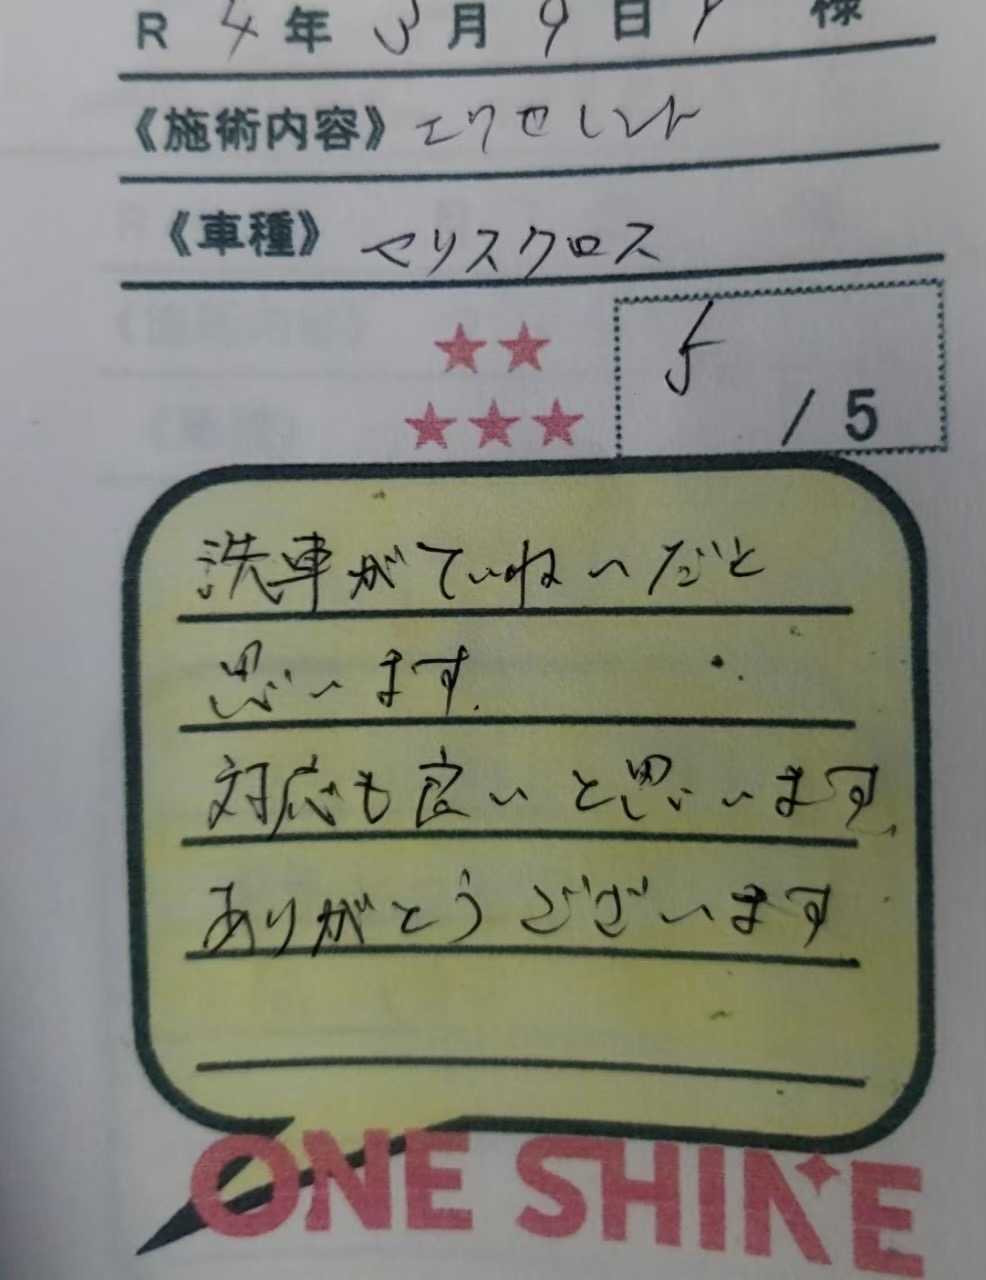 R 4年 3月 9日 様
《施術内容》エクセレント
《車種》ヤリスクロス
5
/ 5
洗車がていねいだと
思います.
対応も良いと思います.
ありがとうございます
ONE SHINE